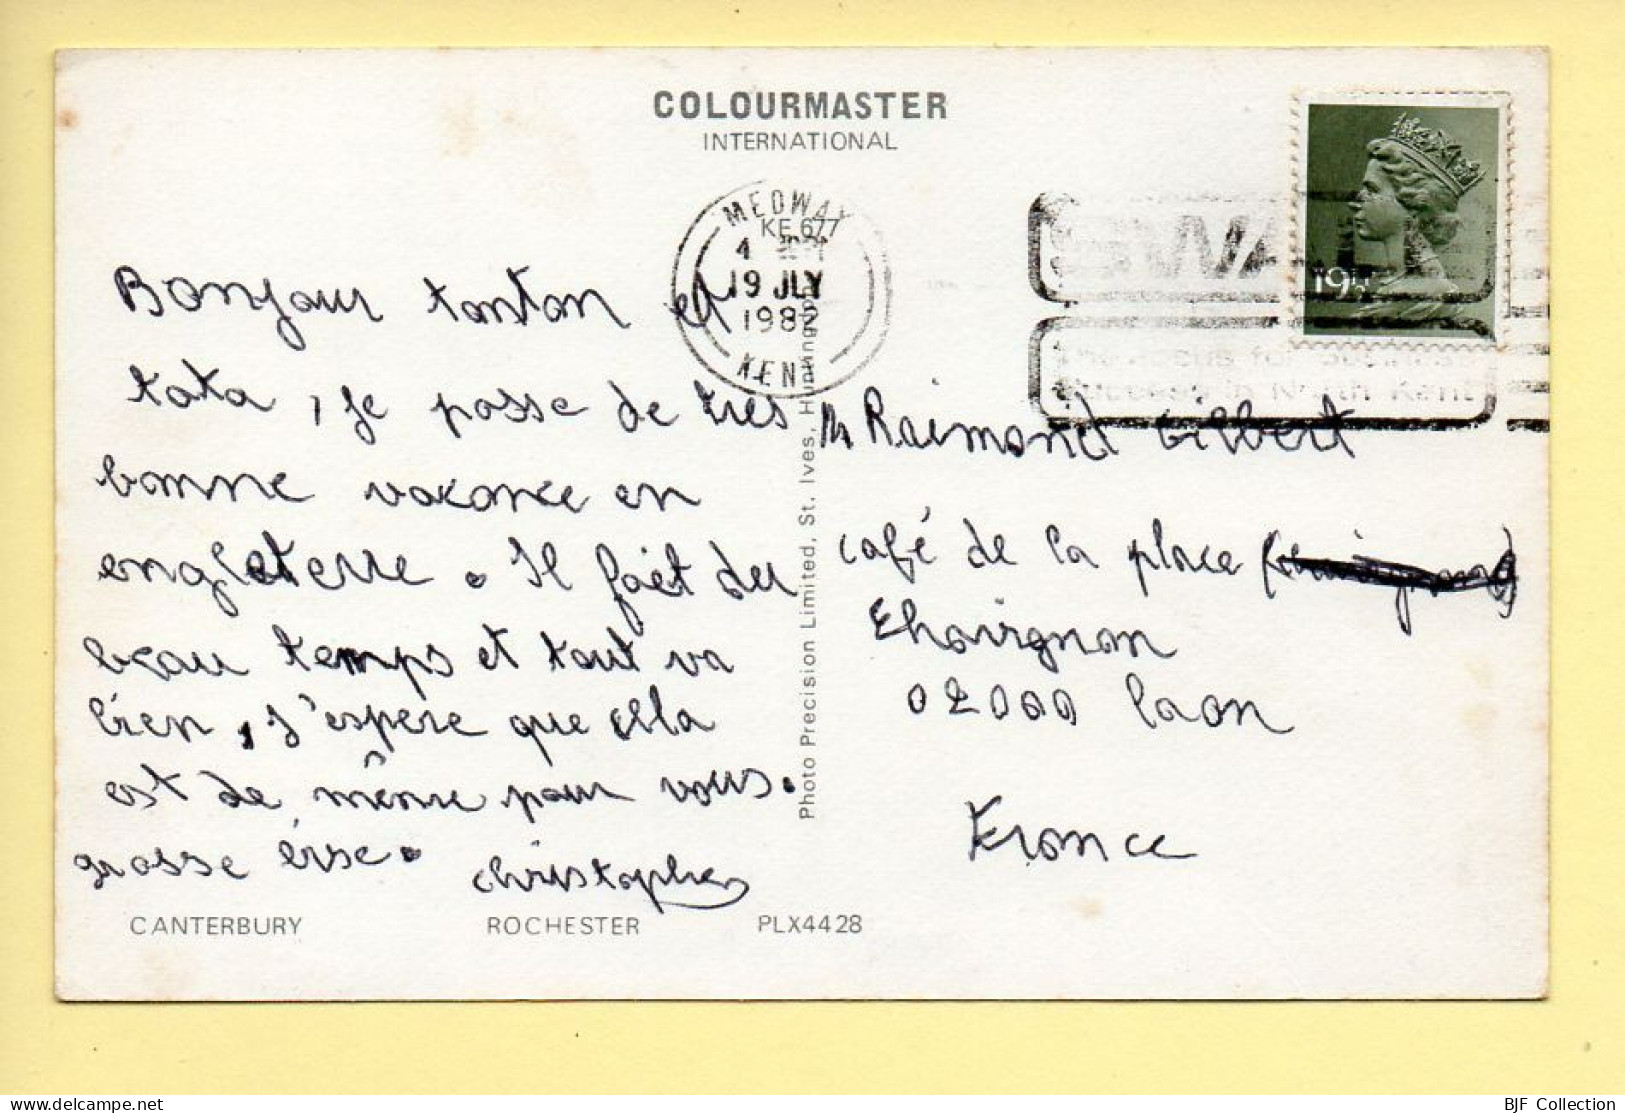 COLOURMASTER
INTERNATIONAL
MEDWAY
KE 677
4
19 JLY
1982
KENT
19P
The focus for business
success in North Kent
Bonjour tonton et
tata, je passe de tres
bonne vacance en
engleterre. Il fait du
beau temps et tout va
bien, j'espere que cela
est de même pour vous.
grosse
christophe
M Raimond Gilbert
café de la place
Chavignon
02000 Laon
France
Photo Precision Limited, St. Ives, Huntingdon
CANTERBURY ROCHESTER PLX4428
BJF Collection